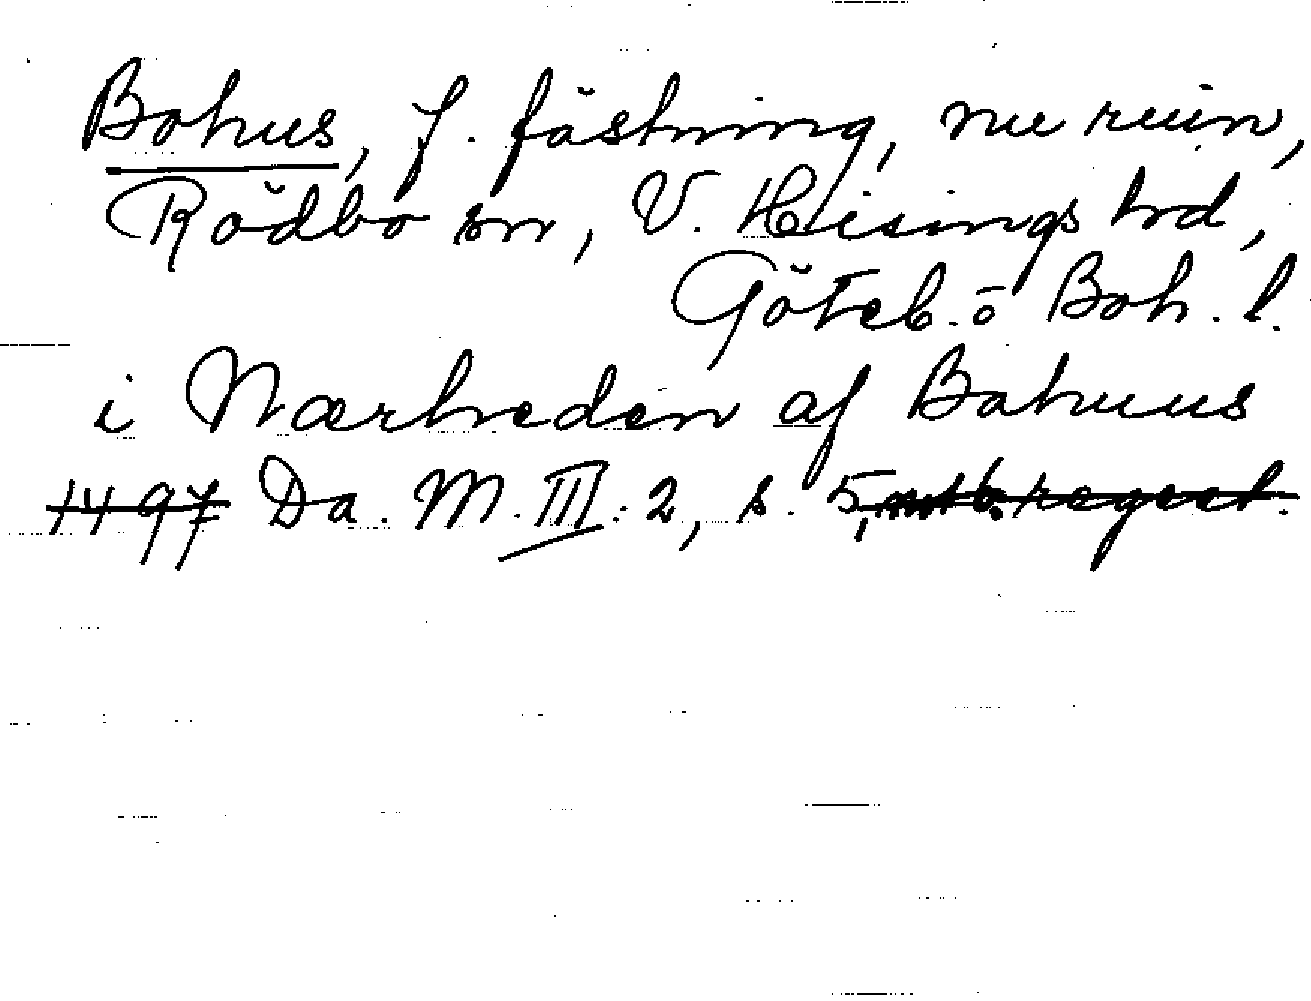 Bohus, f. fästning, nu ruin,
Rödbo sn, V. Hisings hd,
Göteb. o Boh. l.
i Nærheden af Bahuus
1497 Da. M. III: 2, s. 5, regest.